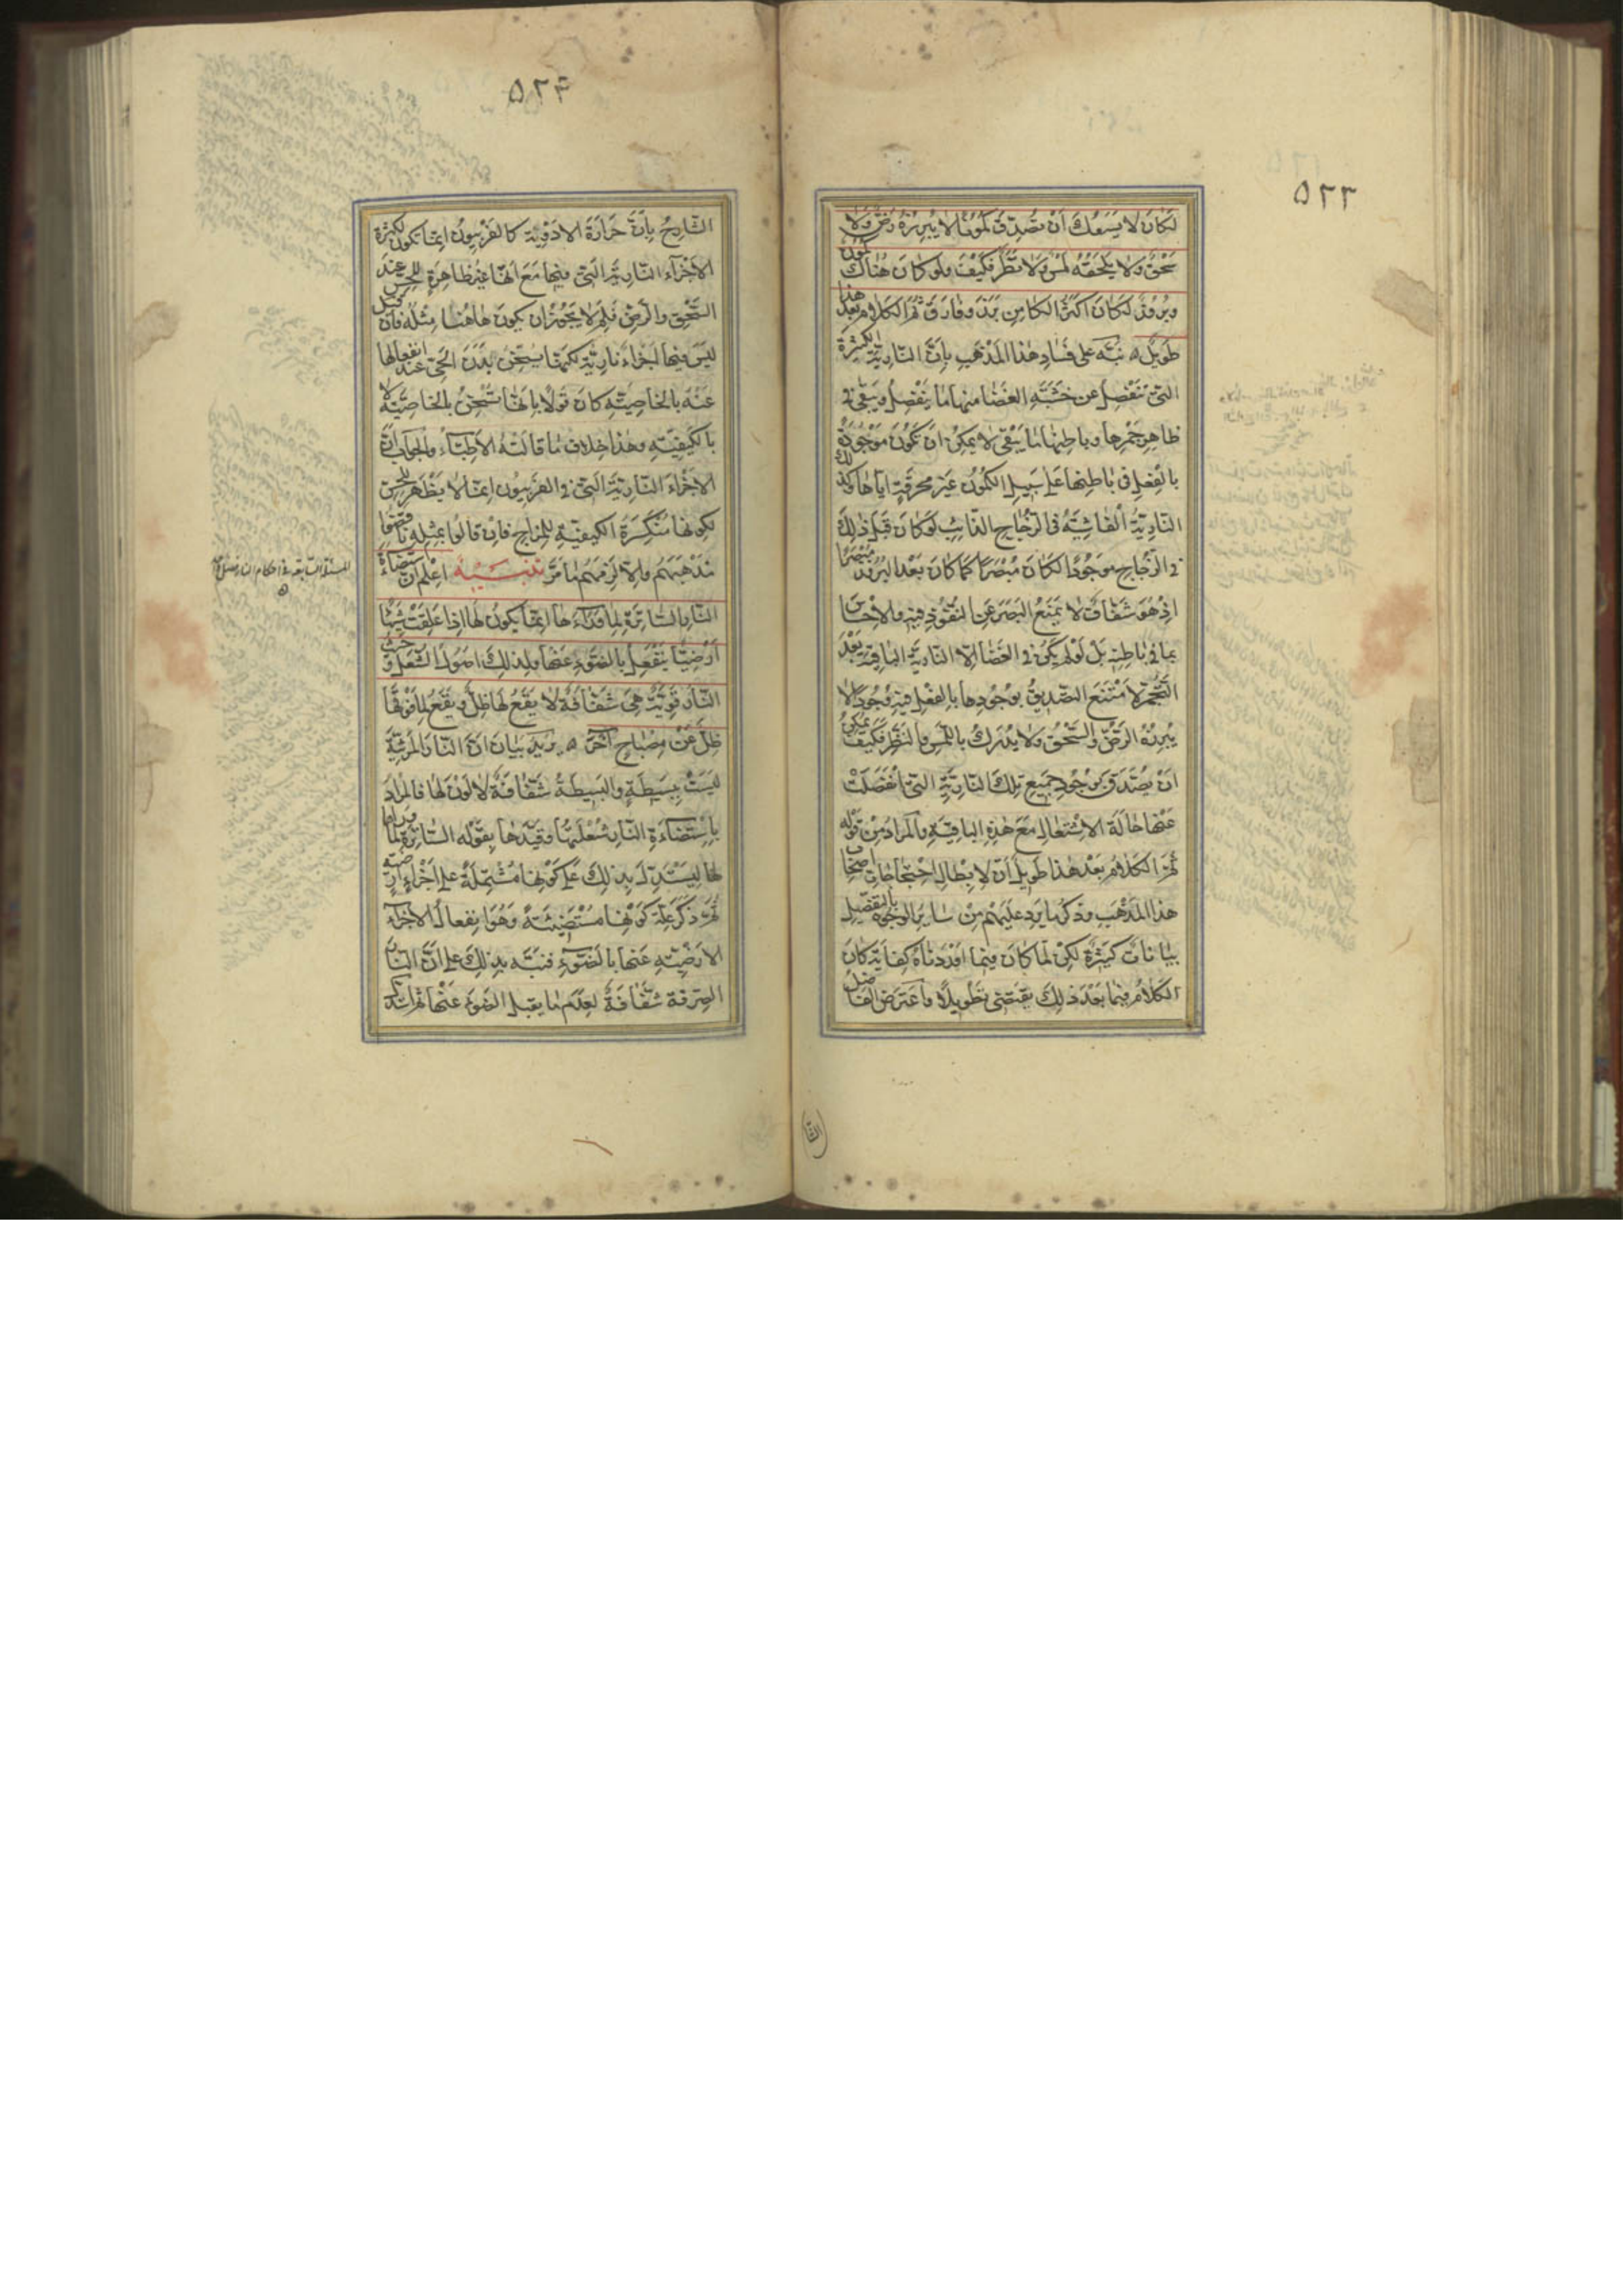 ٥٢٣
لكان لا يسعك ان تصدق كمونا لا يبرزه رض ولا
سحق ولا يلحقه لمس ولا نظر فكيف ولو كان هناك كمون
وبروز لكان اكثر الكامن برز وفارق ثم الكلام بعد هذا
طويل ٥ نبه على فساد هذا المذهب بان النارية الكثيرة
التي تنفصل عن خشبة الغضا منها ما ينفصل ويبقى في
ظاهر جمرها وباطنها ما يبقى لا يمكن ان تكون موجودة
بالفعل في باطنها على سبيل الكمون غير محرقة اياها وكذلك
النارية الفاشية في الزجاج الذائب لو كان قبل ذلك
في الزجاج موجودا لكان مبصرا كما كان بعد البروز مبصرا
اذ هو شفاف لا يمنع البصر عن النفوذ فيه والاحساس
بما في باطنه بل لو لم يكن في الغضا الا النارية الباقية بعد
التجمر لامتنع التصديق بوجودها بالفعل فيه وجودا لا
يبرزه الرض والسحق ولا يدرك باللمس والنظر فكيف يمكن
ان يصدق بوجود جميع تلك النارية التي انفصلت
عنها حالة الاشتعال مع هذه الباقية والمراد من قوله
ثم الكلام بعد هذا طويل ان لابطال احتجاجات اصحاب
هذا المذهب وذكر ما يرد عليهم من سائر الوجوه بالتفصيل
بيانات كثيرة لكن لما كان فيما اوردناه كفاية كان
الكلام فيما بعد ذلك يقتضي تطويلا واعترض الفاضل
الشا
٥٢٤
الشارح بان حرارة الادوية كالفربيون انما تكون لكثرة
الاجزاء النارية التي فيها مع انها غير ظاهرة للحس عند
السحق والرض فلم لا يجوز ان يكون هاهنا مثله فان قيل
ليس فيها اجزاء نارية لكنها يسخن بدن الحي عند انفعالها
عنه بالخاصية كان قولا بانها تسخن بالخاصية لا
بالكيفية وهذا خلاف ما قالته الاطباء والجواب ان
الاجزاء النارية التي في الفربيون انما لا يظهر للحس
لكونها منكسرة الكيفية للمزاج فان قالوا بمثله ناقضوا
مذهبهم والا لزمهم ما مر تنبيه اعلم ان استضاءة
النار الساترة لما وراءها انما يكون لها اذا علقت شيئا
ارضيا ينفعل بالضوء عنها ولذلك اصول الشعل وحيث
النار قوية هي شفافة لا يقع لها ظل ويقع لما فوقها
ظل عن مصباح آخر ٥ يريد بيان ان النار المرئية
ليست ببسيطة والبسيطة شفافة لا لون لها فالمراد
باستضاءة النار شعلتها وقيدها بقوله الساترة لما وراها
لها ليستدل بذلك على كونها مشتملة على اجزاء ارضية
ثم ذكر علة كونها مستضيئة وهو انفعال الاجزاء
الارضية عنها بالضوء فنبه بذلك على ان النار
الصرفة شفافة لعدم ما يقبل الضوء عنها ثم استدل